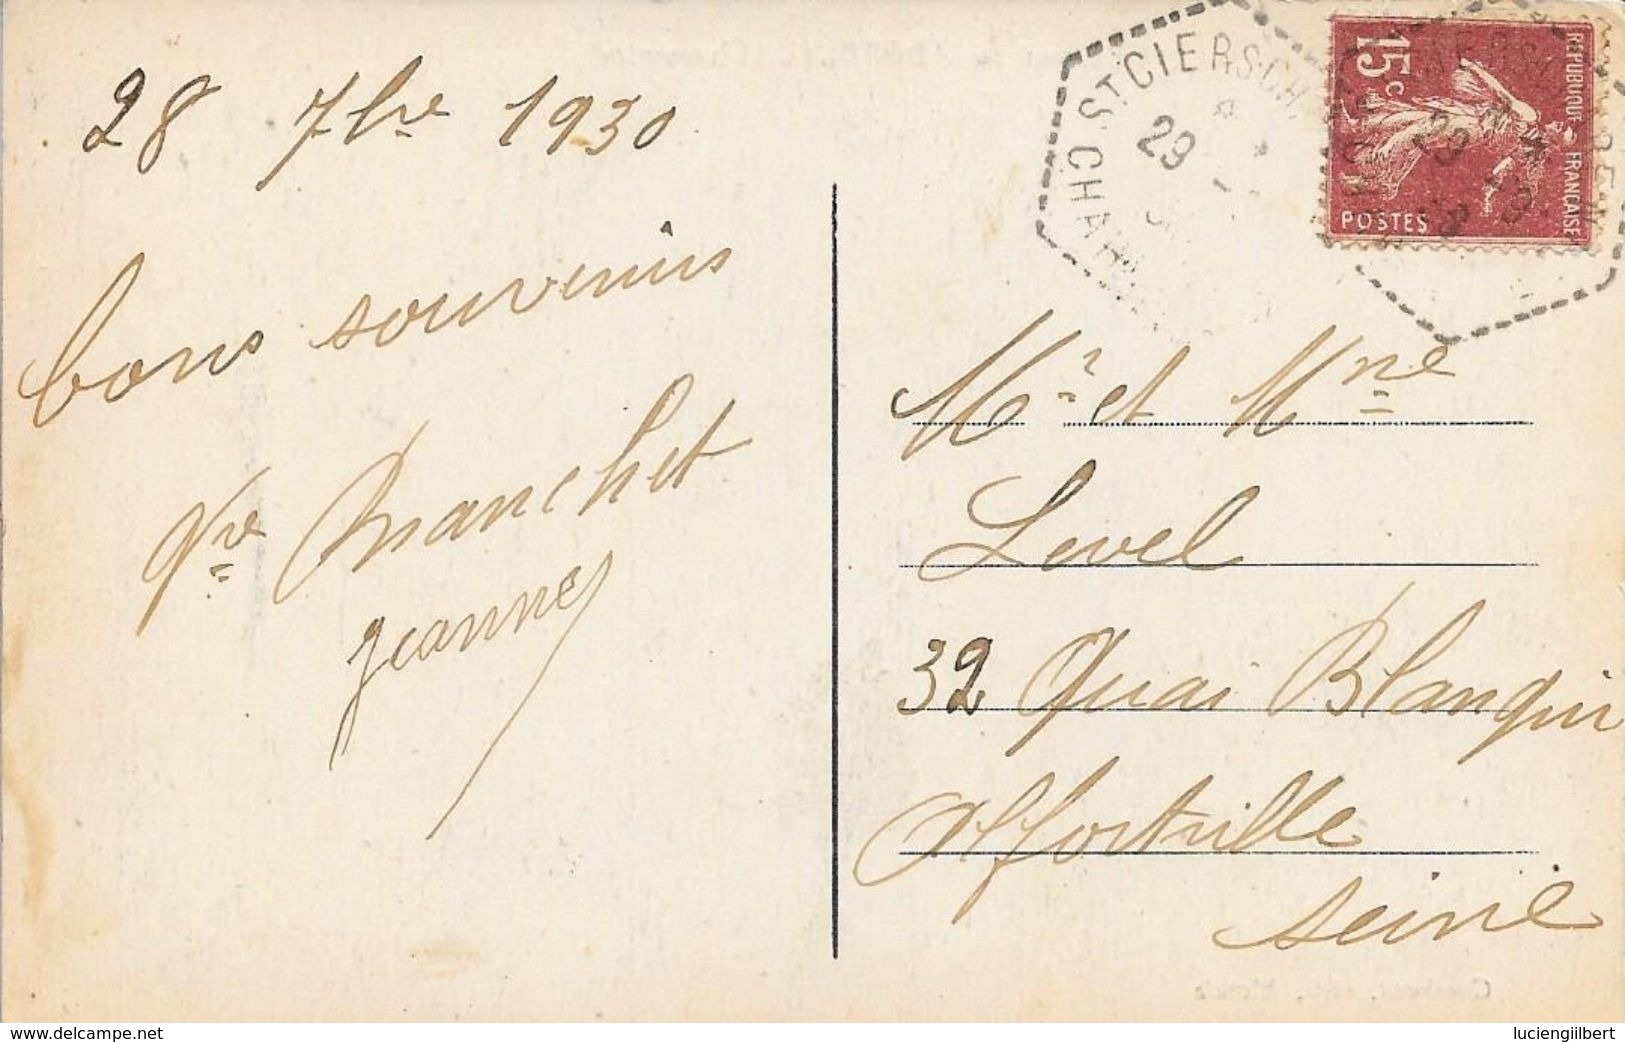 28 7bre 1930
bons souvenirs
Vve Branchet
Jeanne
ST CIERS CH
CHAR
29
15c
REPUBLIQUE FRANCAISE
POSTES
Mr et Mme
Level
32 Quai Blanqui
Alfortville
Seine
www.delcampe.net
luciengilbert